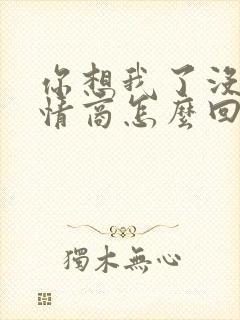 你想我了没
情商怎麼回
獨木無心